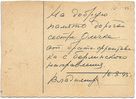 На добрую
память дорогой
сестре Олечке
от брата фронтовика
с берлинского
направления
Владимир